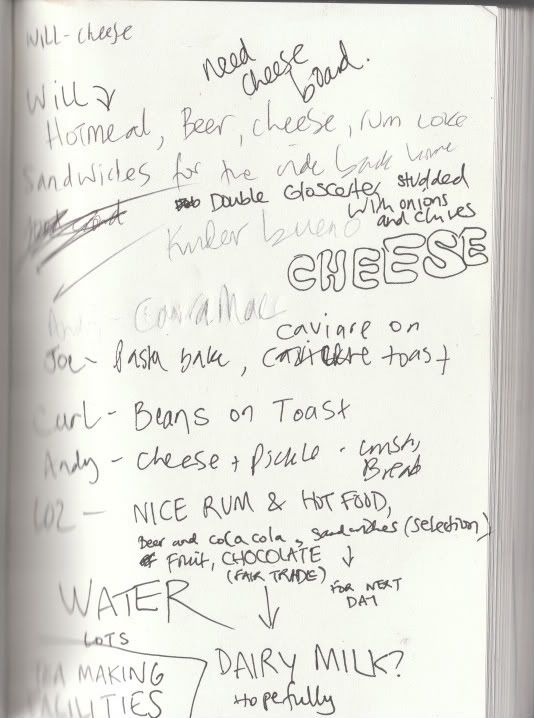 WILL - cheese
need cheese board.
Will
Hotmeal, Beer, cheese, rum coke
Sandwiches for the ride back home
Double Gloscester studded
with onions
and chives
Kinder bueno
CHEESE
Andy -
caviare on
Joe - Pasta bake, toast
Curl - Beans on Toast
Andy - cheese + Pickle -
Bread
LOZ - NICE RUM & HOT FOOD,
Beer and cola cola, sandwiches (selection)
Fruit, CHOCOLATE
(FAIR TRADE)
FOR NEXT
DAY
WATER
LOTS
MAKING
FACILITIES
DAIRY MILK?
Hopefully